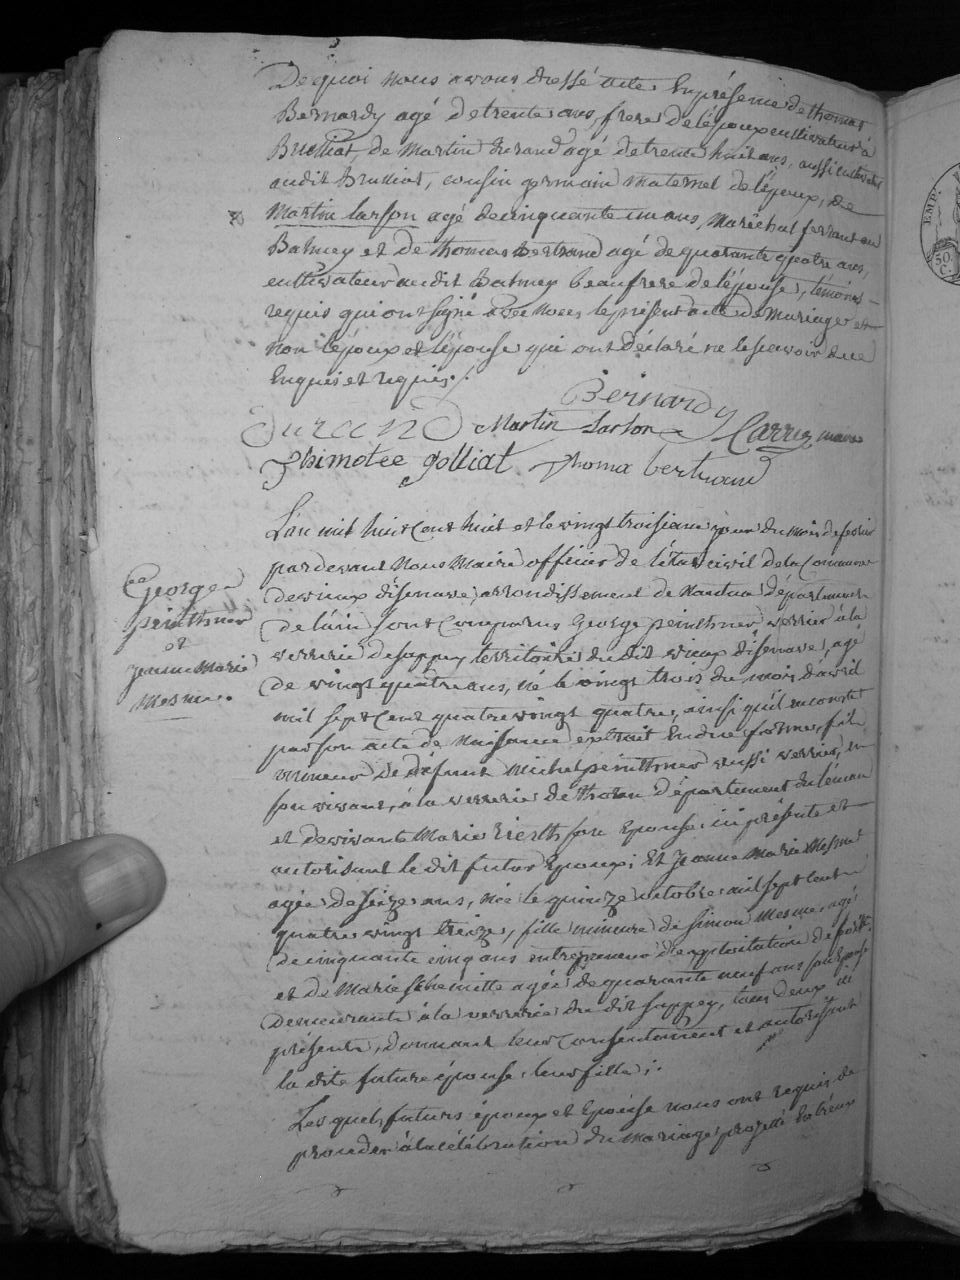 De quoi nous avons dressé acte En présence de thomas
Bernardy agé de trente ans, frere de l'époux cultivateur à
Brulliat, de Martin durand agé de trente huit ans, aussi cultivateur
audit Brulliat, cousin germain maternel de l'époux, de
Martin larson agé de cinquante un ans, Maréchal ferrant au
Balmey et de thomas bertrand agé de quarante quatre ans,
cultivateur audit Balmey beaufrere de l'épouse, témoins
requis qui ont signé avec nous le présent acte de Mariage et
non l'époux et l'épouse qui ont déclaré ne le sçavoir de ce
Enquis et requis./.
Bernardy
Durand Martin larson Carrez maire
Thimotée golliat thoma bertrand
George
peinthner
et
jeanne Marie
Mesme.
L'an mil huit cent huit et le vingt troisieme jour du mois de fevrier
pardevant Nous Maire officier de l'état civil de la Commune
de vieux d'isenave, arrondissement de Nantua Département
de l'ain sont Comparus George peinthner verrier à la
verrerie de sappey territoire du dit vieux d'isenave, agé
de vingt quatre ans, né le vingt trois du mois d'avril
mil sept cent quatre vingt quatre, ainsi qu'il en conste
par son acte de Naissance extrait En due forme, fils
mineur de défunt Michel peinthner aussi verrier, en
son vivant, à la verrerie de thoran Département du léman
et de vivante Marie son Epouse, ici présente et
autorisant le dit futur Epoux; Et Jeanne Marie Mesme
agée de seize ans, née le quinze octobre mil sept cent
quatre vingt treize, fille mineure de simon Mesme, agé
de cinquante cinq ans entrepreneur d'exploitation de
et de Marie schemitte agée de quarante neuf ans son Epouse
demeurants à la verrerie du dit sappey, tous deux ici
présents, donnant leur Consentement et autorisant
la dite future épouse leur fille;.
Les quels futurs époux et Epouse nous ont requis de
proceder à la célébration du Mariage projetté Entr'eux